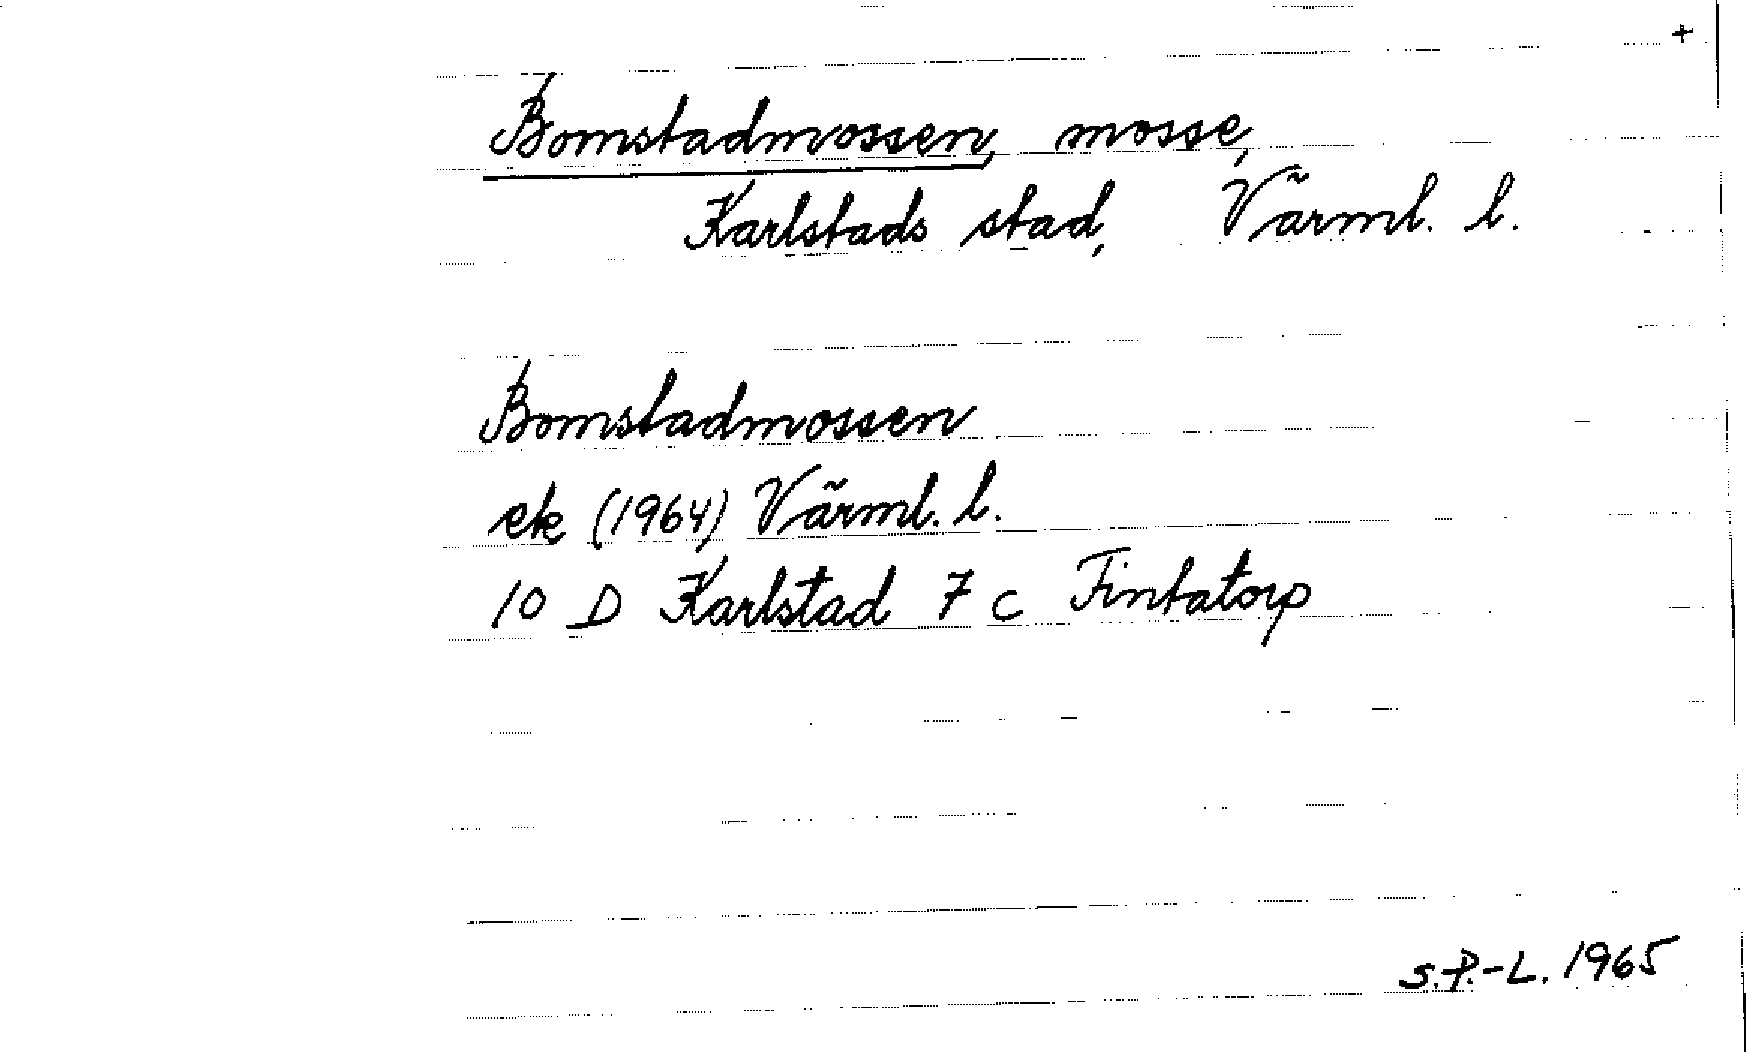 +
Bomstadmossen, mosse,
Karlstads stad, Värml. l.
Bomstadmossen
ek (1964) Värml. l.
10 D Karlstad 7 c Fintatorp
S.P.-L. 1965